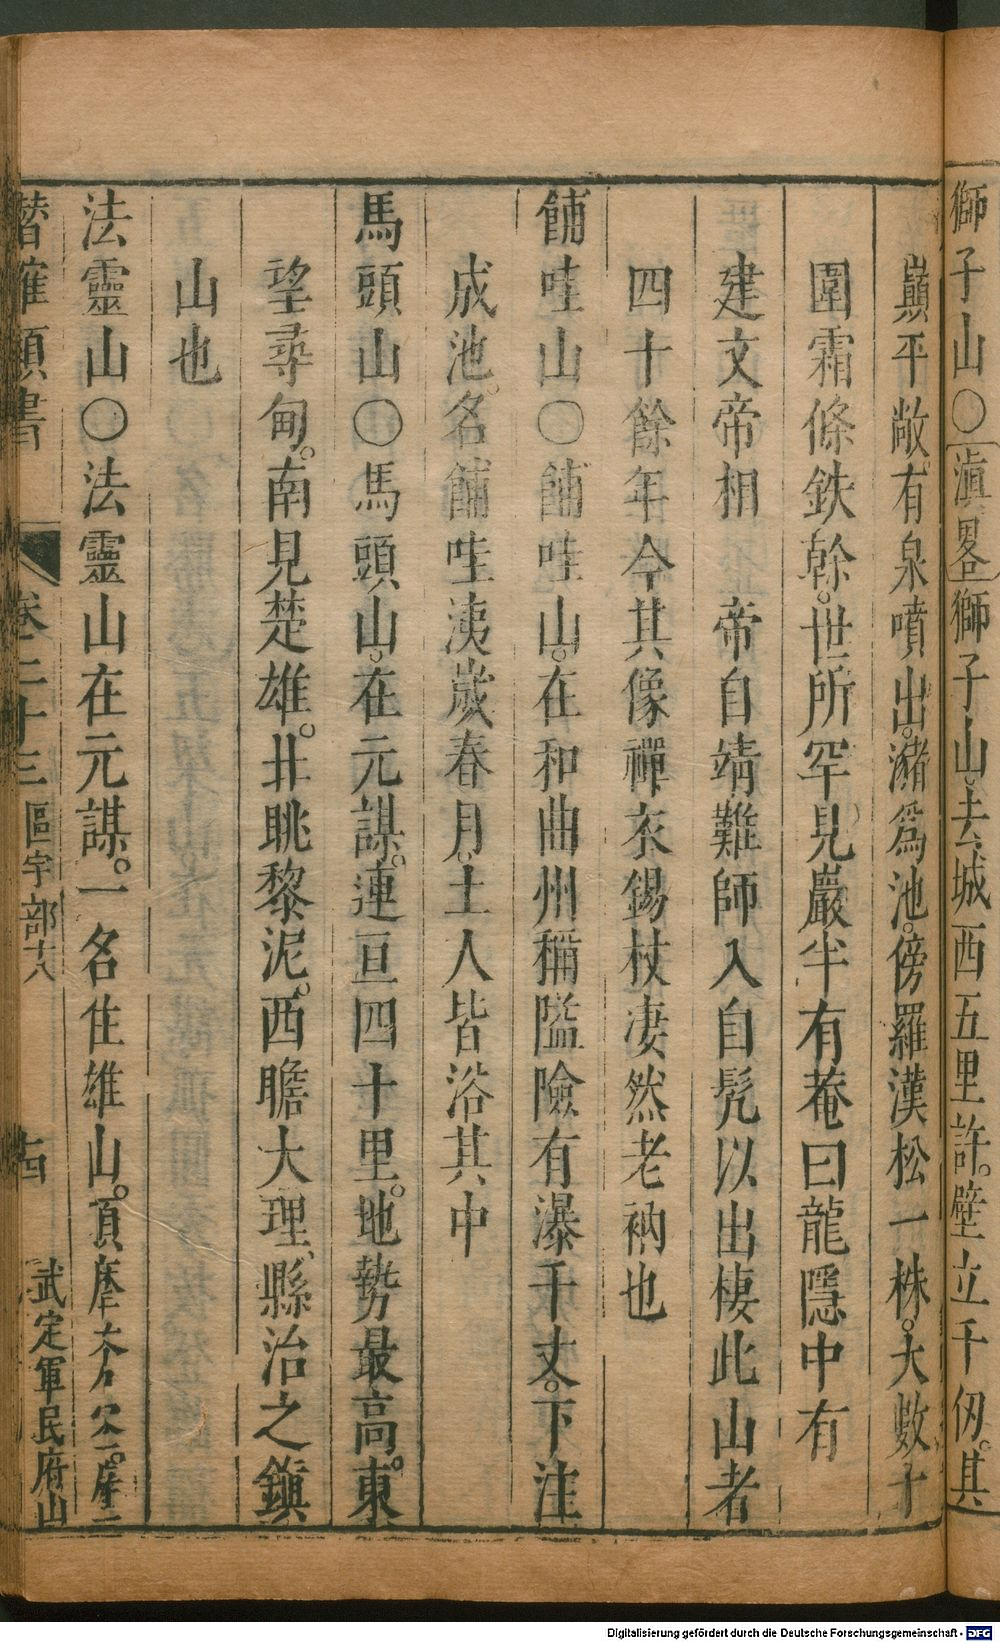 獅子山○滇畧獅子山。去城西五里許。壁立千仞。其
巔平敞。有泉噴出。瀦爲池。傍羅漢松一株。大數十
圍霜條鉄幹。世所罕見巖半有菴曰龍隱中有
建文帝相 帝自靖難師入自髠以出棲此。山者
四十餘年今其像禪衣錫杖凄然老衲也
餔哇山○餔哇山。在和曲州稱隘險有瀑千丈。下注
成池。名餔哇洟歲春月。土人皆浴其中
馬頭山○馬頭山。在元謀。連亘四十里。地勢最高。東
望尋甸。南見楚雄。北眺黎泥。西瞻大理、縣治之鎭
山也
法靈山○法靈山在元謀。一名住雄山。頂摩
卷二十三 區宇部十八 武定軍民府山
Digitalisierung gefördert durch die Deutsche Forschungsgemeinschaft - DFG